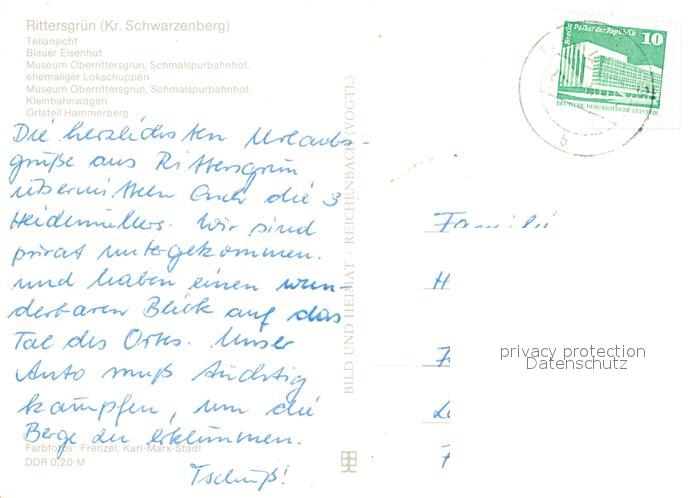 Rittersgrün (Kr. Schwarzenberg)
Teilansicht
Blauer Eisenhut
Museum Oberrittersgrün, Schmalspurbahnhof,
ehemaliger Lokschuppen
Museum Oberrittersgrün, Schmalspurbahnhof,
Kleinbahnwagen
Ortsteil Hammerberg
Die herzlichsten Urlaubs-
grüße aus Rittersgrün
übermitteln Euch die 3
Heidemüllers. Wir sind
privat untergekommen.
und haben einen wun-
derbaren Blick auf das
Tal des Ortes. Unser
Auto muß tüchtig
kämpfen, um die
Berge zu erklimmen.
Tschüß!
Farbfotos: Frenzel, Karl-Marx-Stadt
DDR 0,20 M
BILD UND HEIMAT · REICHENBACH (VOGTL)
Berlin Palast der Republik 10
DEUTSCHE DEMOKRATISCHE REPUBLIK
Familie
H
privacy protection
Datenschutz